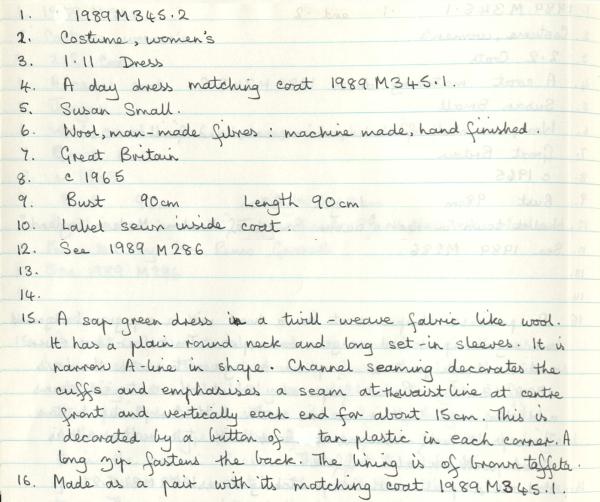 1. 1989 M 345.2
2. Costume, women's
3. 1.11 Dress
4. A day dress matching coat 1989 M345.1.
5. Susan Small.
6. Wool, man-made fibres : machine made, hand finished.
7. Great Britain
8. c 1965
9. Bust 90cm Length 90cm
10. Label sewn inside coat.
12. See 1989 M286
13.
14.
15. A sap green dress in a twill-weave fabric like wool.
It has a plain round neck and long set-in sleeves. It is
narrow A-line in shape. Channel seaming decorates the
cuffs and emphasises a seam at the waist line at centre
front and vertically each end for about 15cm. This is
decorated by a button of tan plastic in each corner. A
long zip fastens the back. The lining is of brown taffeta.
16. Made as a pair with its matching coat 1989 M345.1.